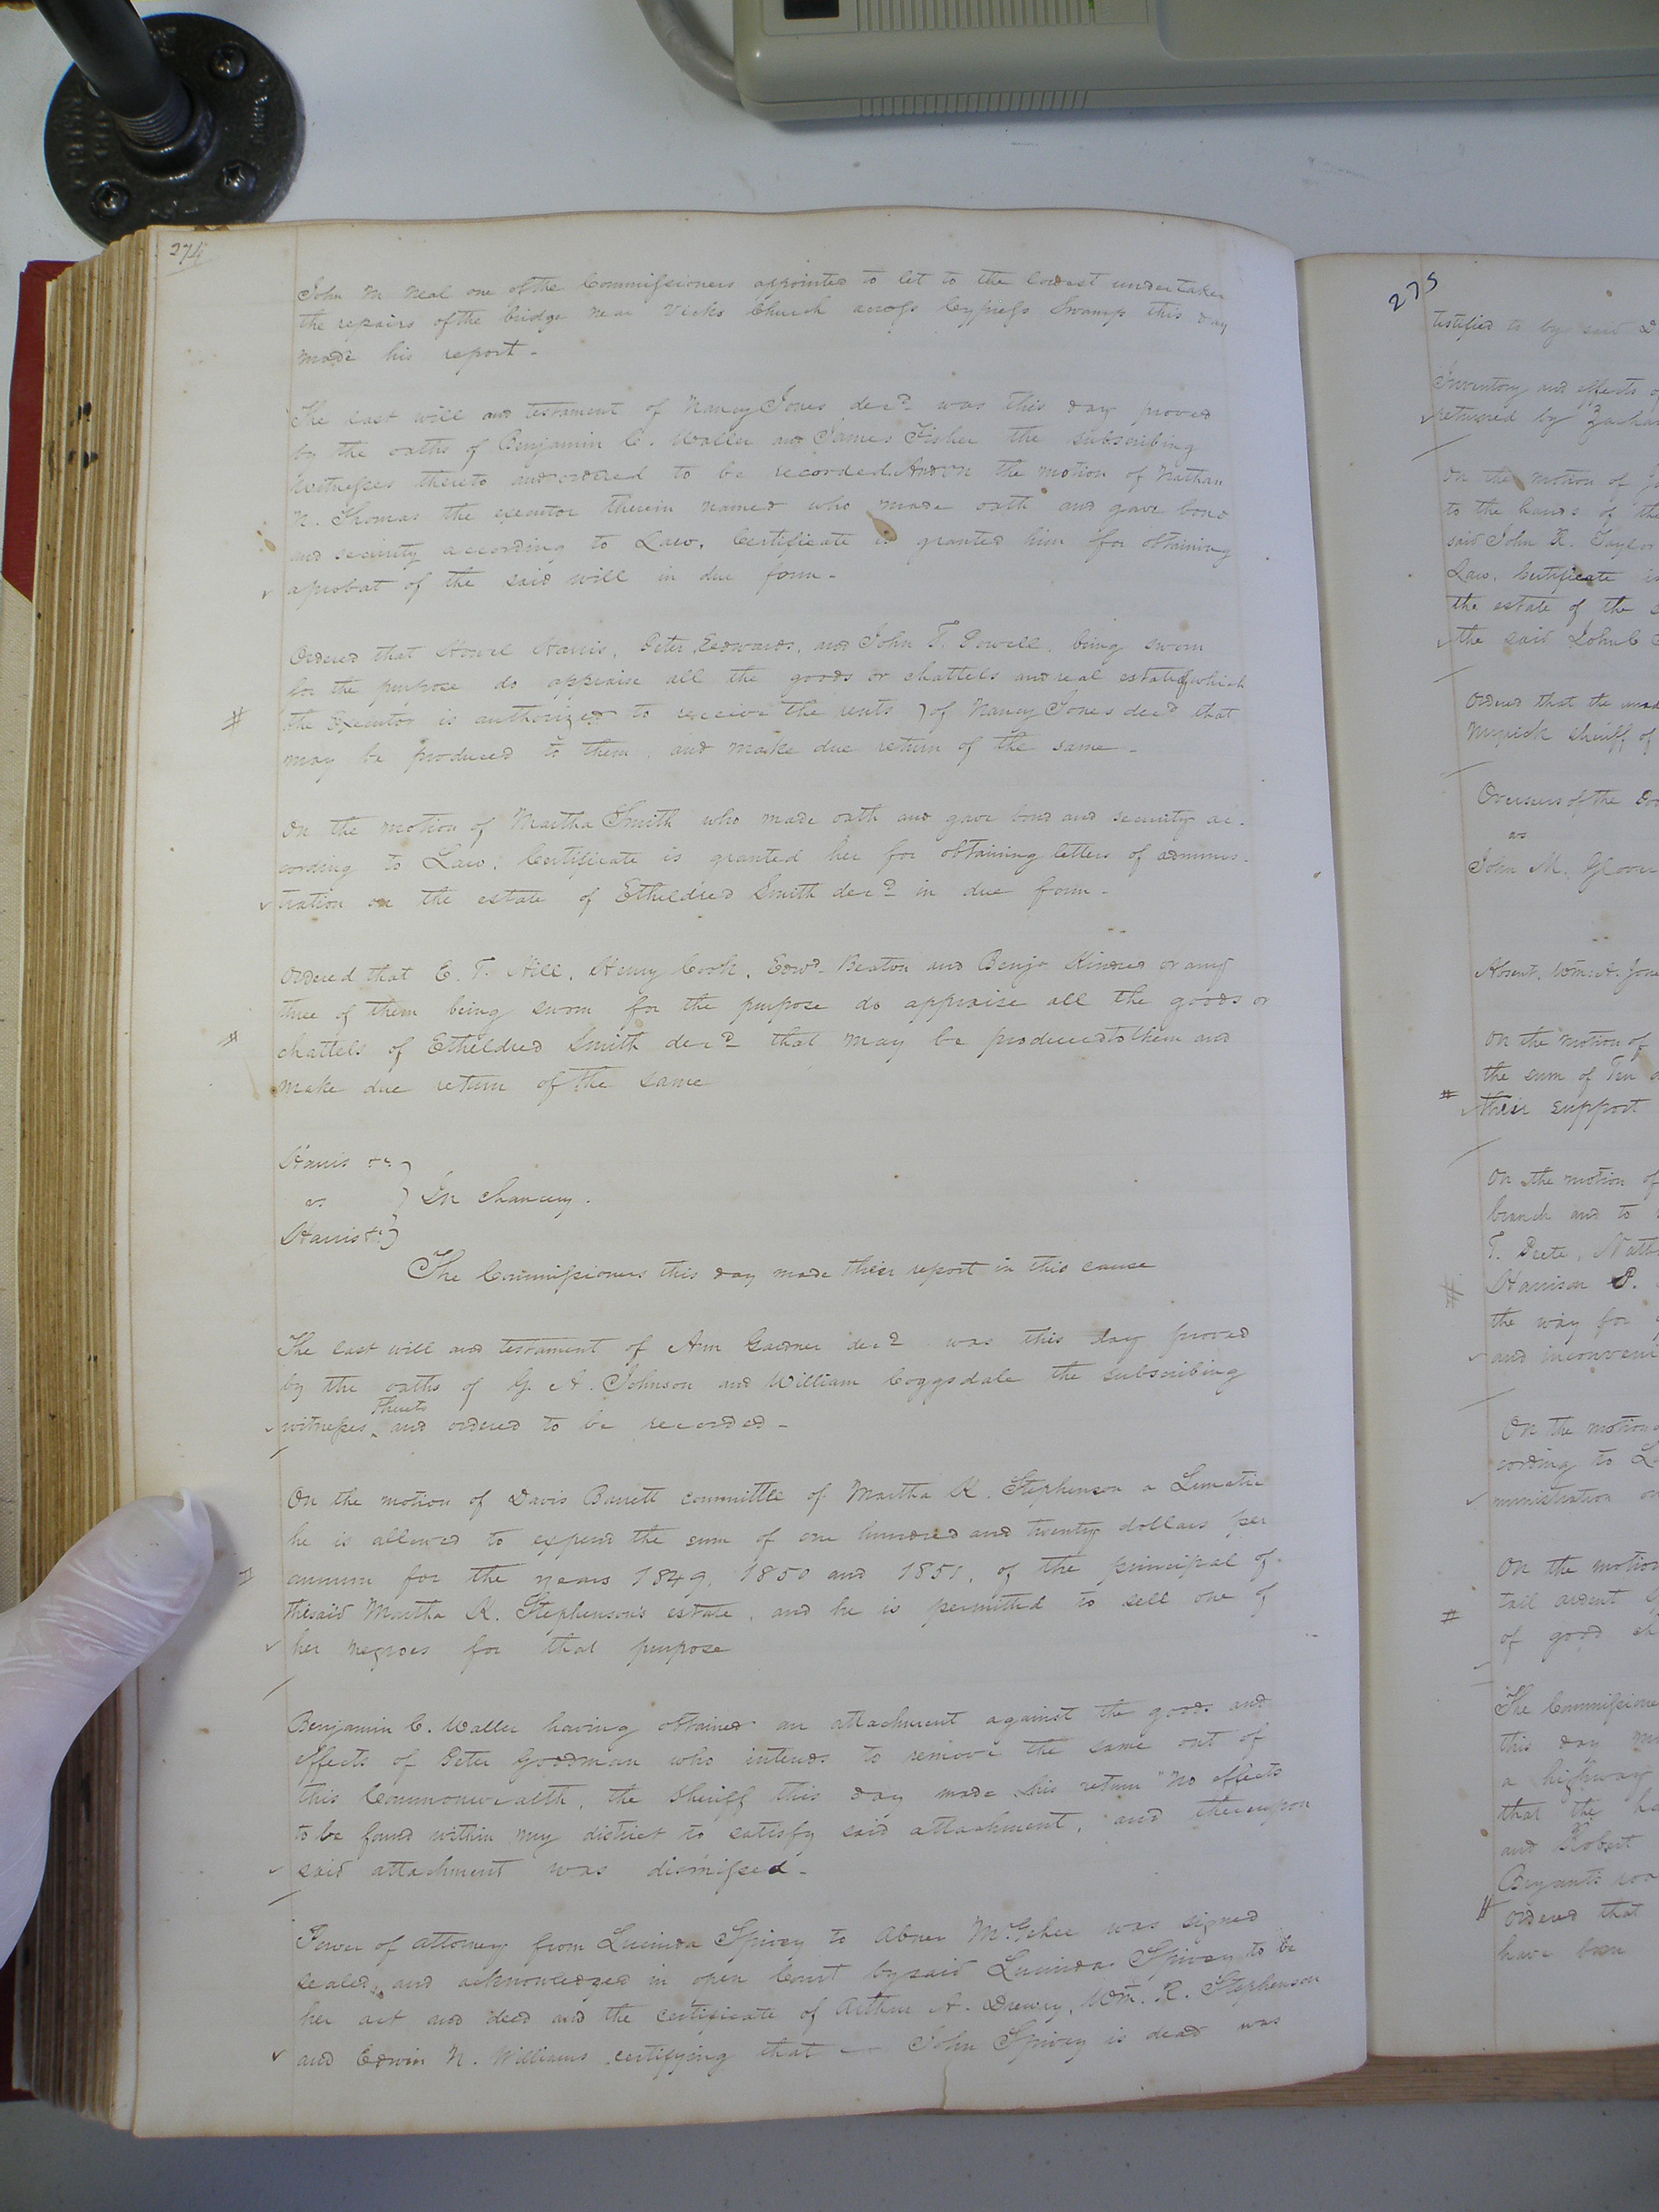 274
John M Neal one of the Commissioners appointed to let to the lowest undertaker
the repairs of the bridge near Vicks Church across Cypress Swamp this day
made his report -
The last will and testament of Nancy Jones decd was this day proved
by the oaths of Benjamin C. Waller and James Fisher the subscribing
witnesses thereto and ordered to be recorded. And on the motion of Nathan
N. Thomas the executor therein named who made oath and gave bond
and security according to Law, Certificate is granted him for obtaining
a probat of the said will in due form -
Ordered that Howel Harris, Peter Edwards, and John T. Powell, being sworn
for the purpose do appraise all the goods or chattels and real estate (of which
# the Executor is authorized to receive the rents ) of Nancy Jones decd that
may be produced to them, and make due return of the same -
On the motion of Martha Smith who made oath and gave bond and security ac-
cording to Law, Certificate is granted her for obtaining letters of adminis-
tration on the estate of Etheldred Smith decd in due form -
Ordered that E. T. Hill, Henry Cook, Edwd Beaton and Benja Kindred or any
three of them being sworn for the purpose do appraise all the goods or
# chattels of Etheldred Smith decd that may be produced to them and
make due return of the same
Harris &c )
vs ) In Chancery.
Harris &c )
The Commissioners this day made their report in this cause
The last will and testament of Ann Gardner decd was this day proved
by the oaths of G. A. Johnson and William Coggsdale the subscribing
thereto
witnesses ^ and ordered to be recorded -
On the motion of Davis Barrett committee of Martha K. Stephenson a Lunatic
he is allowed to expend the sum of one hundred and twenty dollars per
annum for the years 1849, 1850 and 1851, of the principal of
the said Martha K. Stephenson's estate, and he is permitted to sell one of
her negroes for that purpose
Benjamin C. Waller having obtained an attachment against the goods and
effects of Peter Goodman who intends to remove the same out of
this Commonwealth, the sheriff this day made his return "No effects
to be found within my district to satisfy said attachment," and thereupon
said attachment was dismissed -
Power of attorney from Lucinda Spivey to Abner McGehee was signed
sealed, and acknowledged in open Court by said Lucinda Spivey to be
her act and deed and the certificate of Arthur A. Drewry, Wm. R. Stephenson
and Edwin N. Williams certifying that — John Spivey is dead was
275
testified to by said
Inventory and effects
returned by
On the motion of
to the hands of the
said John R. Taylor
Law. Certificate
the estate of the
the said John C
Ordered that the
Myrick Sheriff of
Overseers of the
vs
John M. Glover
Absent, Wm. A. Jone
On the motion of
the sum of Ten
# their support
On the motion of
branch and to
T. Peete,
# Harrison P.
the way for
and inconveni
On the motion
cording to
ministration
On the motion
# tail ardent
of good
The Commissione
this day
a highway
that the
and Robert
Bryants
# Ordered that
have been